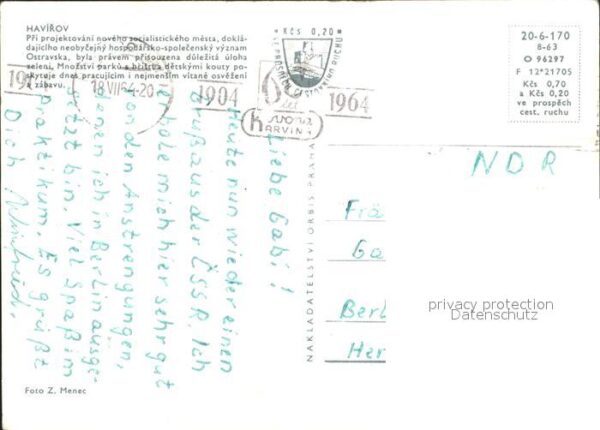 HAVÍŘOV
Při projektování nového socialistického města, doklá-
dajícího neobyčejný hospodářsko-společenský význam
Ostravska, byla právem přisouzena důležitá úloha
zeleni. Množství parků a hřiště s dětskými kouty po-
skytuje dnes pracujícím i nejmenším vítané osvěžení
a zábavu.
18 VII 64-20
1904
1964
60
let
svona
KARVINÁ
Kčs 0,20
VE PROSPĚCH CESTOVNÍHO RUCHU
20-6-170
8-63
O 96297
F 12*21705
Kčs 0,70
a Kčs 0,20
ve prospěch
cest. ruchu
Liebe Gabi!
Heute nun wieder einen
Gruß aus der ČSSR. Ich
erhole mich hier sehr gut
von den Anstrengungen,
denen ich in Berlin ausge-
setzt bin. Viel Spaß im
Praktikum. Es grüßt
Dich Winfried.
NAKLADATELSTVÍ ORBIS PRAHA
NDR
Frä
Ga
Berl
Her
privacy protection
Datenschutz
Foto Z. Menec